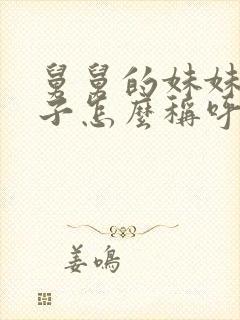 舅舅的妹妹
子怎麼稱呼
姜鳴